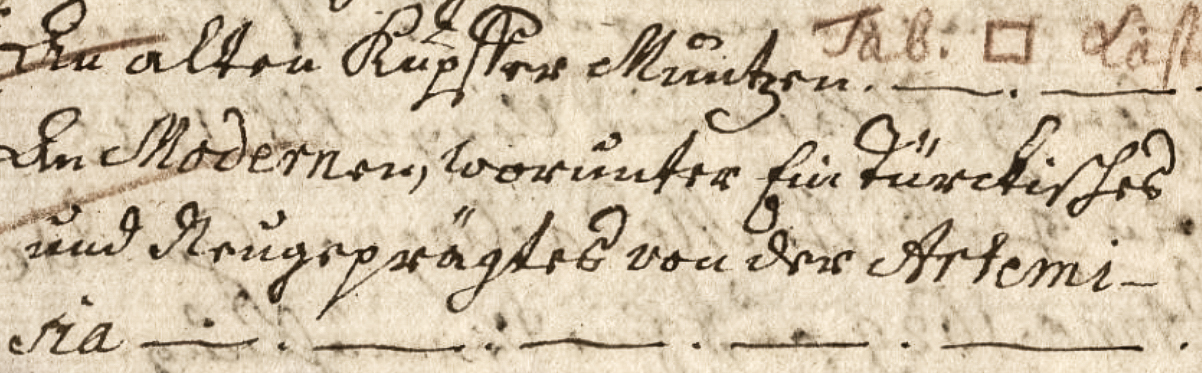 An alten Kupffer Müntzen. Tab. □ Läst
An Modernen, worunter Ein Türckisches
und Neugeprägtes von der Artemi-
sia